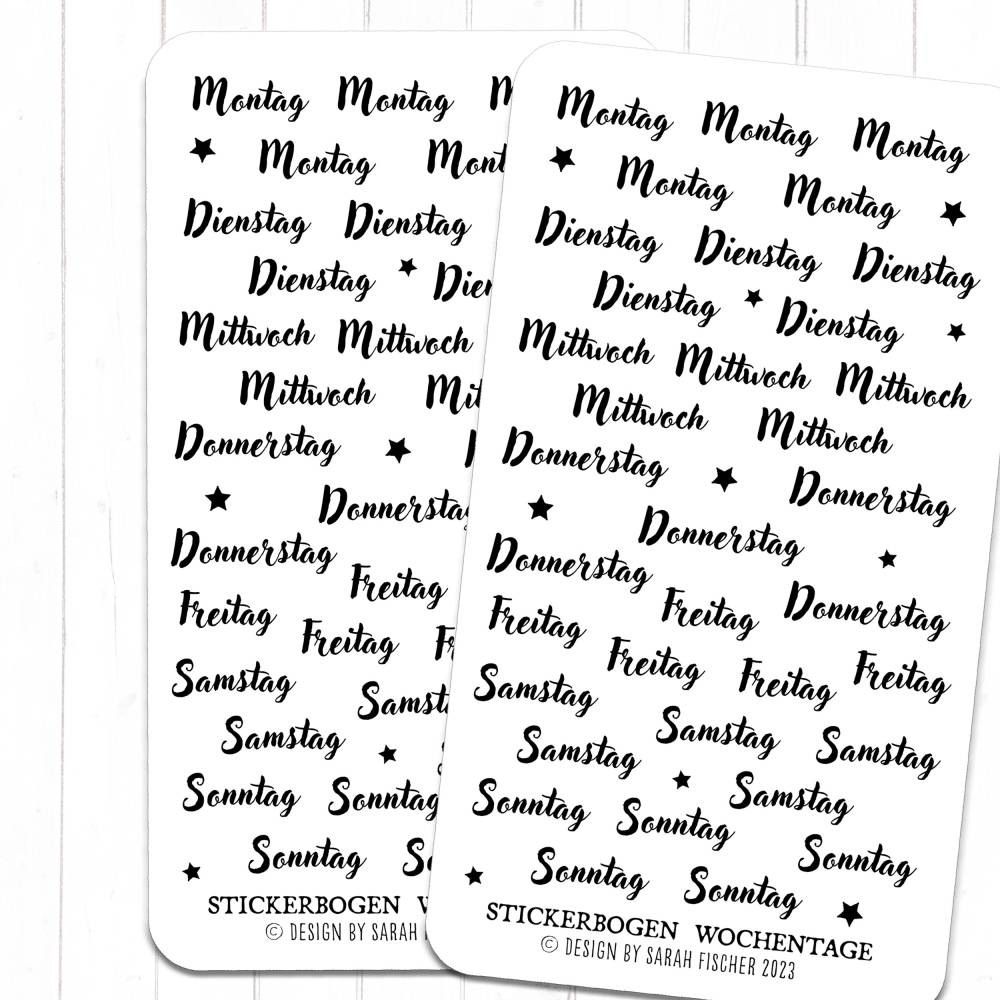 Montag Montag
Montag
Dienstag Dienstag
Dienstag
Mittwoch Mittwoch
Mittwoch
Donnerstag
Donnerstag
Donnerstag
Freitag
Freitag
Freitag
Samstag
Samstag
Sonntag Sonntag
Sonntag
STICKERBOGEN
© DESIGN BY SARAH
Montag Montag Montag
Montag Montag
Dienstag Dienstag Dienstag
Dienstag Dienstag
Mittwoch Mittwoch Mittwoch
Mittwoch Mittwoch
Donnerstag
Donnerstag
Donnerstag
Donnerstag
Donnerstag
Freitag Freitag
Freitag Freitag Freitag
Samstag Samstag Samstag
Samstag Samstag
Sonntag Sonntag Sonntag
Sonntag Sonntag
STICKERBOGEN WOCHENTAGE
© DESIGN BY SARAH FISCHER 2023